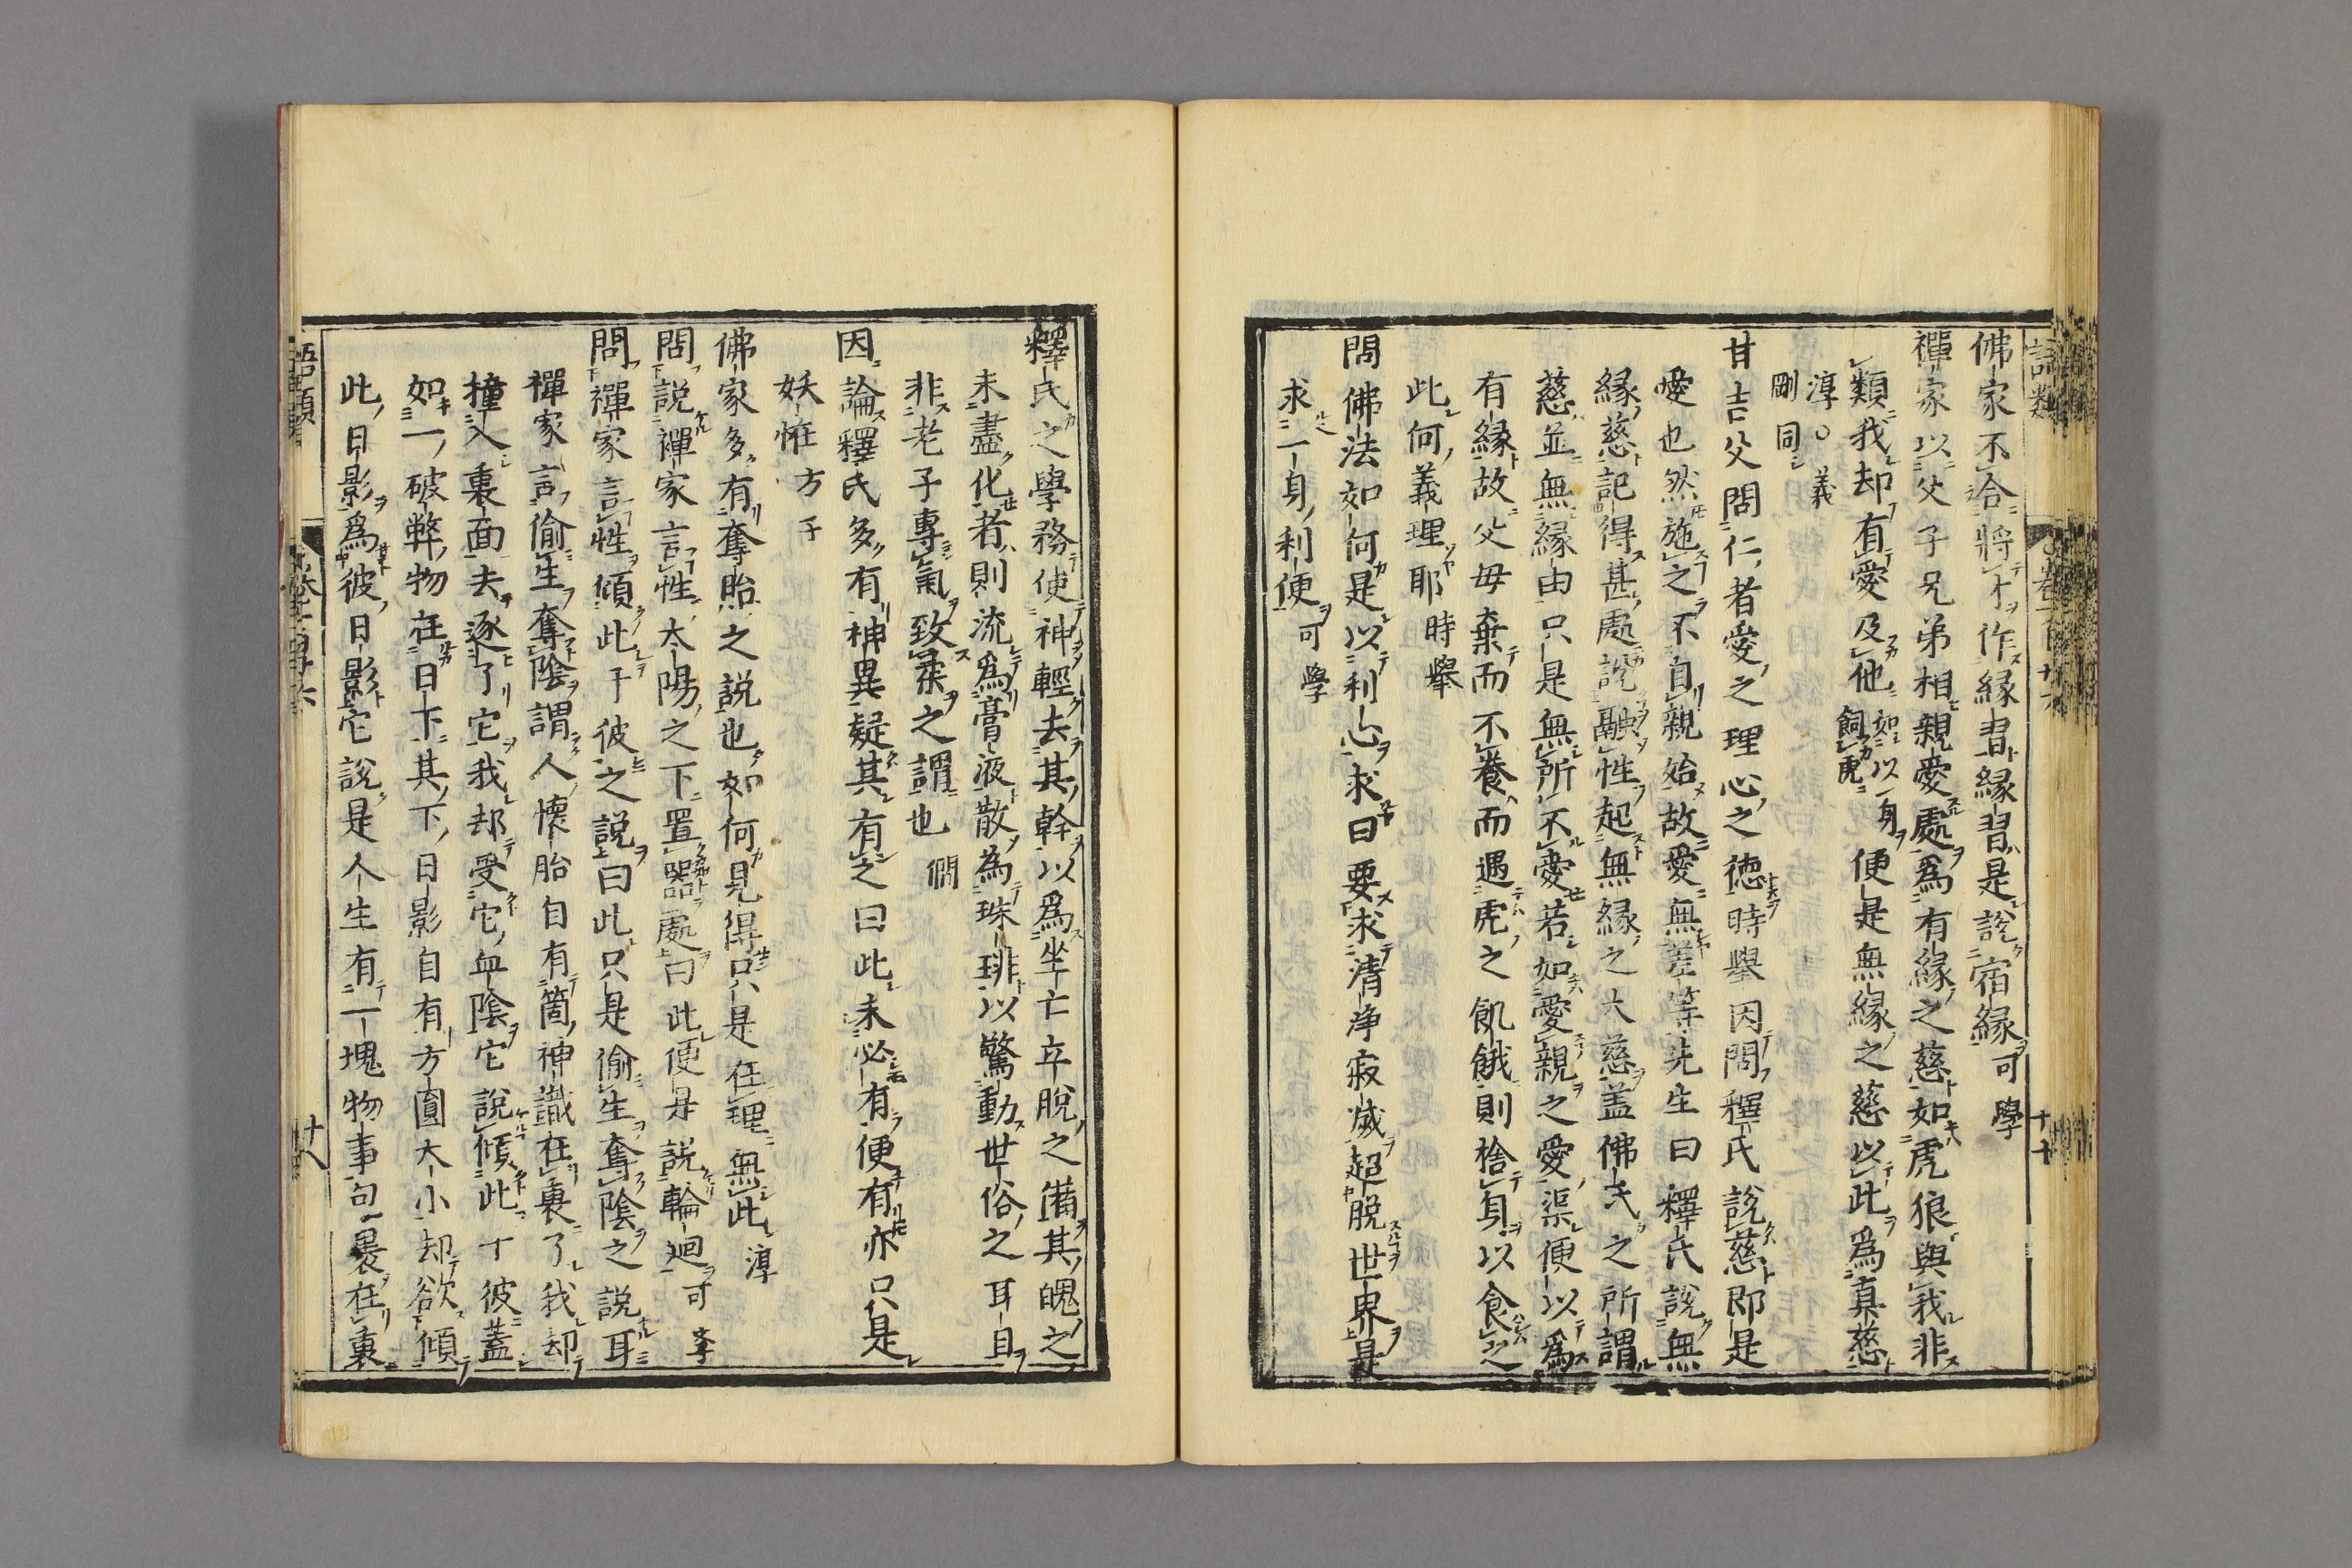 佛家不合將才作緣習緣習是說宿緣可學
禪家以父子兄弟相親愛處爲有緣之慈如虎狼與我非
類我却有愛及他如以一身飼虎便是無緣之慈以此爲真慈
淳○義
剛同
甘吉父問仁者愛之理心之德時舉因問釋氏說慈即是
愛也然施之不自親始故愛無差等先生曰釋氏說無
緣慈記得甚處說融性起無緣之大慈盖佛氏之所謂
慈並無緣由只是無所不愛若如愛親之愛渠便以爲
有緣故父母棄而不養而遇虎之飢餓則捨身以食之
此何義理耶時舉
問佛法如何是以利心求曰要求清净寂滅超脱世界是
求一身利便可學
釋氏之學務使神輕去其幹以爲坐亡立脫之備其魄之
未盡化者則流爲膏液散為珠琲以驚動世俗之耳目
非老子專氣致柔之謂也僩
因論釋氏多有神異疑其有之曰此未必有便有亦只是
妖怪方子
佛家多有奪胎之說也如何見得只是在理無此淳
問說禪家言性太陽之下置器處曰此便是說輪廻可李
問禪家言性傾此于彼之說曰此只是偷生奪陰之說耳
禪家言偷生奪陰謂人懷胎自有箇神識在裏了我却
撞入裏面去逐了它我却受它血陰它說傾此于彼蓋
如一破弊物在日下其下日影自有方圓大小却欲傾
此日影爲彼日影它說是人生有一塊物事包裹在裏
語類
十八